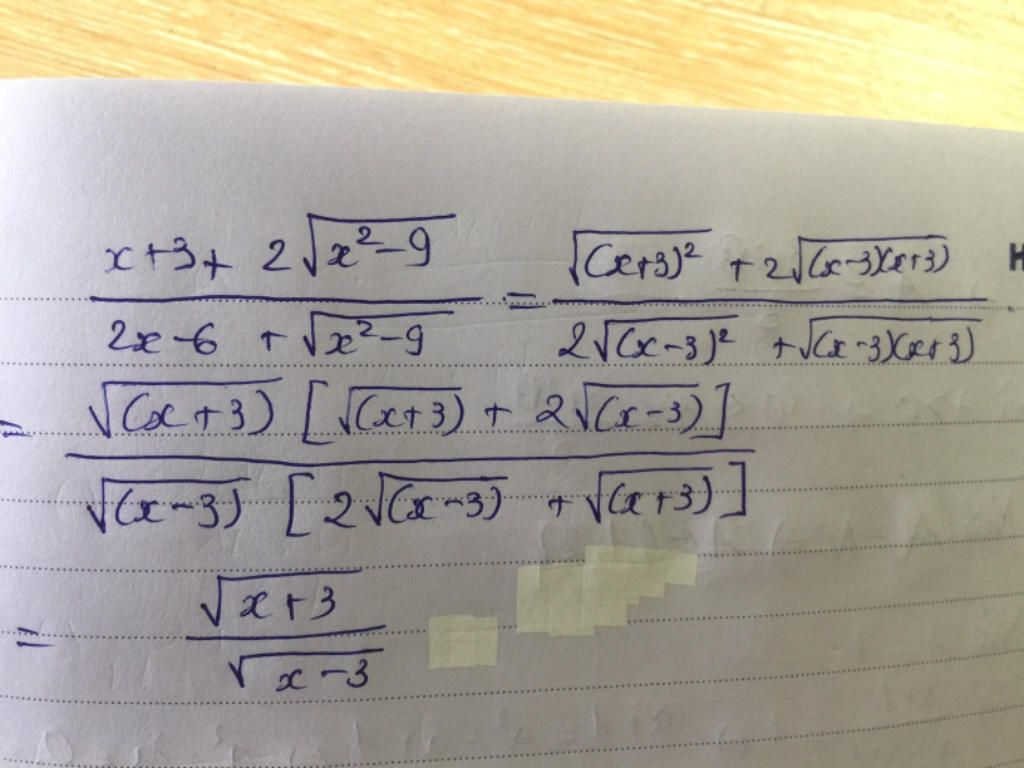 (x+3+ 2√(x²-9))/(2x-6 + √(x²-9)) = (√((x+3)²) + 2√((x-3)(x+3)))/(2√((x-3)²) + √((x-3)(x+3)))
= (√(x+3) [√(x+3) + 2√(x-3)])/(√(x-3) [2√(x-3) + √(x+3)])
= √(x+3)/√(x-3)